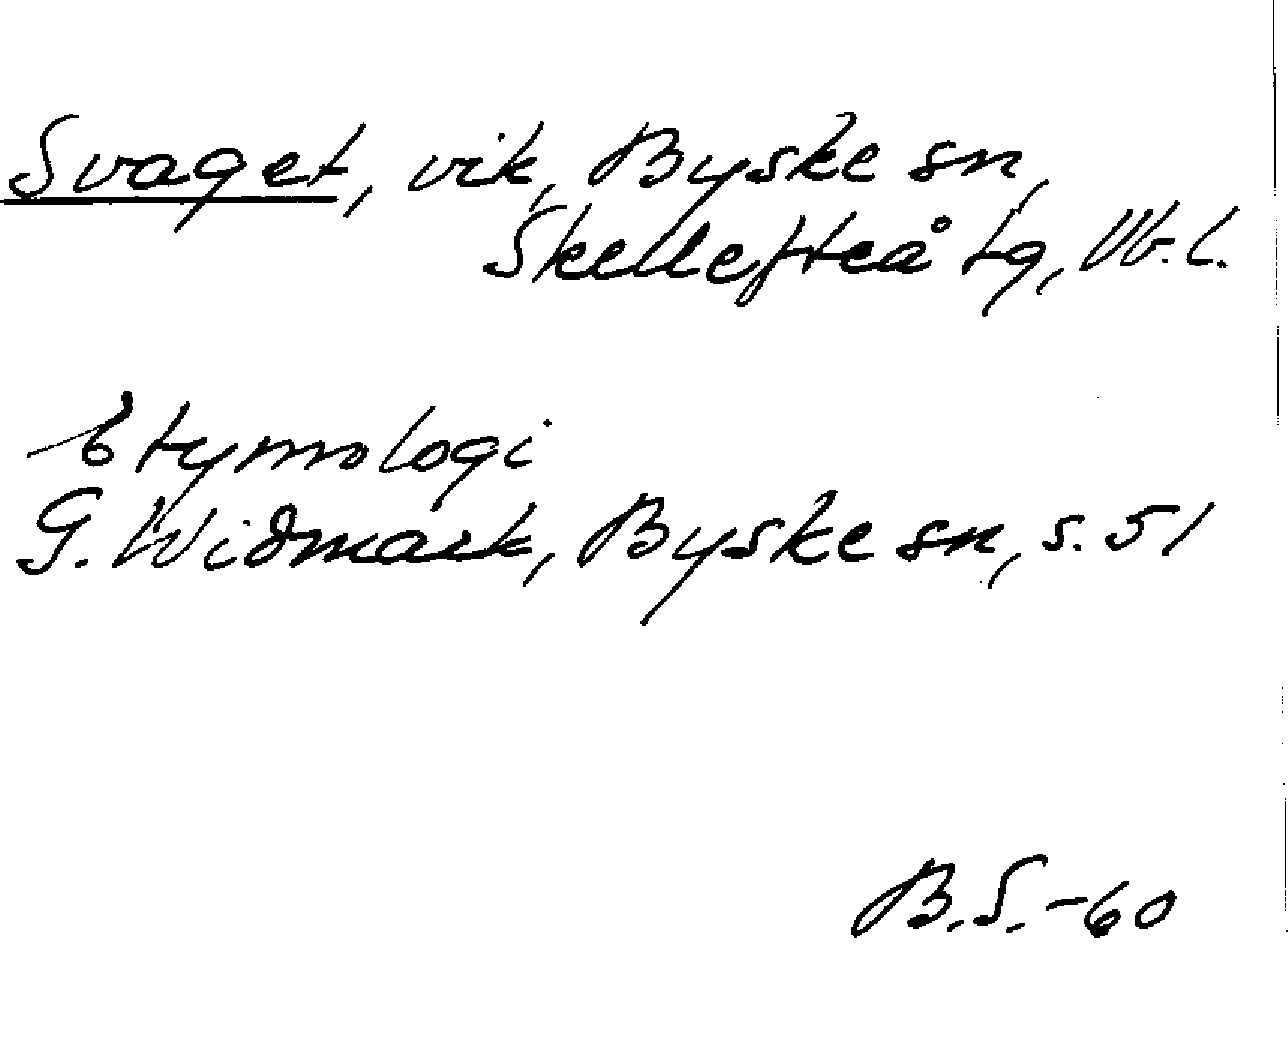 Svaget, vik, Byske sn,
Skellefteå tg, Vb. l.
Etymologi
G. Widmark, Byske sn, s. 51
B.S. -60